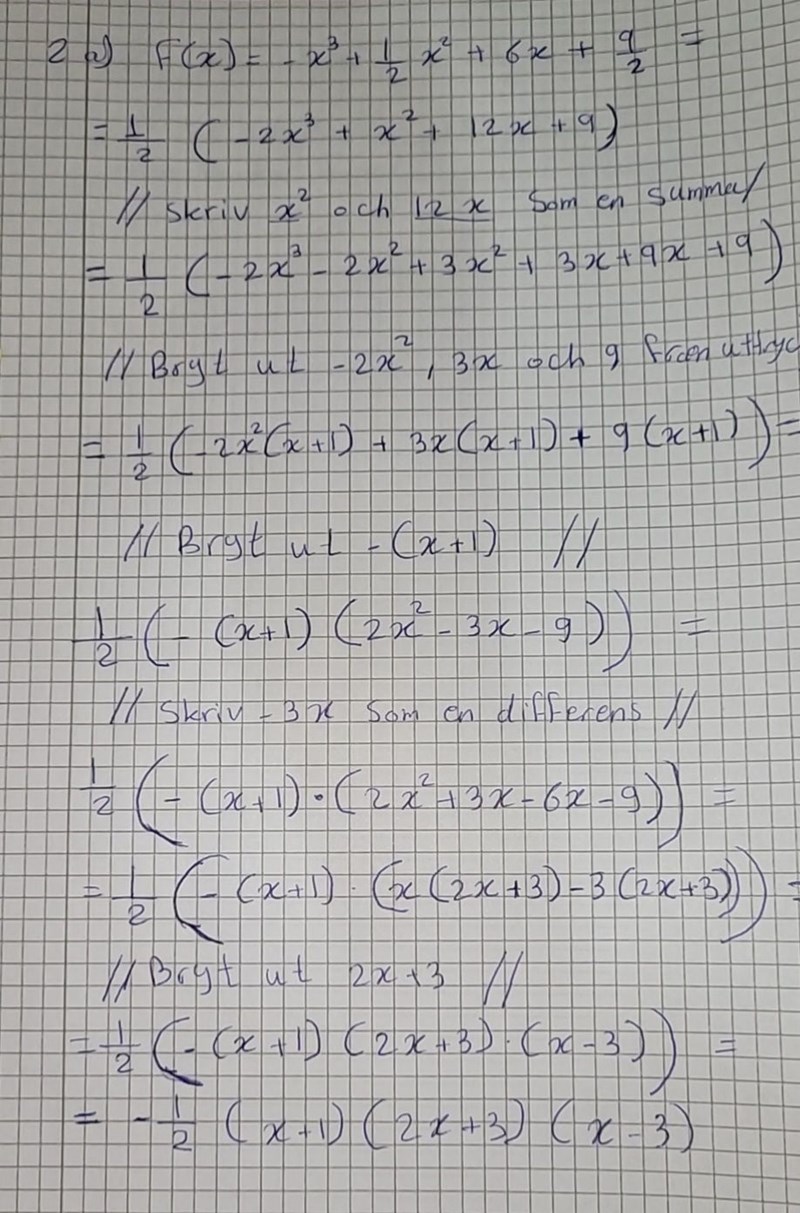 2 a) F(x) = -x³ + 1/2 x² + 6x + 9/2 =
= 1/2 (-2x³ + x² + 12x + 9)
// Skriv x² och 12x som en summa/
= 1/2 (-2x³ - 2x² + 3x² + 3x + 9x + 9)
// Bryt ut -2x², 3x och 9 från uttryc
= 1/2 (-2x²(x+1) + 3x(x+1) + 9(x+1)) =
// Bryt ut -(x+1) //
1/2 (-(x+1)(2x² - 3x - 9)) =
// Skriv -3x som en differens //
1/2 (-(x+1)·(2x² + 3x - 6x - 9)) =
= 1/2 (-(x+1)·(x(2x+3) - 3(2x+3))) =
// Bryt ut 2x+3 //
= 1/2 (-(x+1)(2x+3)·(x-3)) =
= -1/2 (x+1)(2x+3)(x-3)